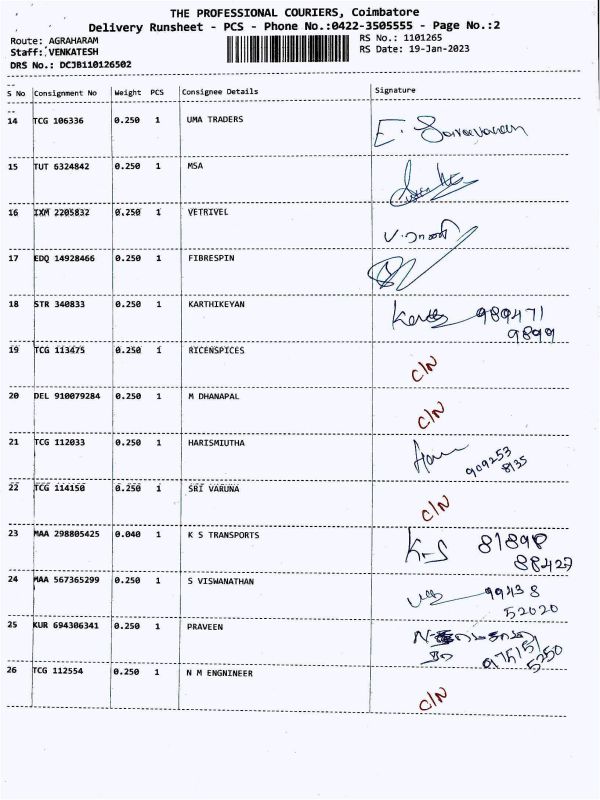 THE PROFESSIONAL COURIERS, Coimbatore
Delivery Runsheet - PCS - Phone No.:0422-3505555 - Page No.:2
Route: AGRAHARAM RS No.: 1101265
Staff: VENKATESH RS Date: 19-Jan-2023
DRS No.: DCJB110126502
S No Consignment No Weight PCS Consignee Details Signature
14 TCG 106336 0.250 1 UMA TRADERS E. Saravanan
15 TUT 6324842 0.250 1 MSA
16 IXM 2205832 0.250 1 VETRIVEL
17 EDQ 14928466 0.250 1 FIBRESPIN
18 STR 340833 0.250 1 KARTHIKEYAN 989471
9899
19 TCG 113475 0.250 1 RICENSPICES C/N
20 DEL 910079284 0.250 1 M DHANAPAL C/N
21 TCG 112033 0.250 1 HARISMIUTHA 909253
8135
22 TCG 114150 0.250 1 SRI VARUNA C/N
23 MAA 298805425 0.040 1 K S TRANSPORTS K-S 81898
88427
24 MAA 567365299 0.250 1 S VISWANATHAN 99438
52020
25 KUR 694306341 0.250 1 PRAVEEN
975151
5250
26 TCG 112554 0.250 1 N M ENGNINEER C/N